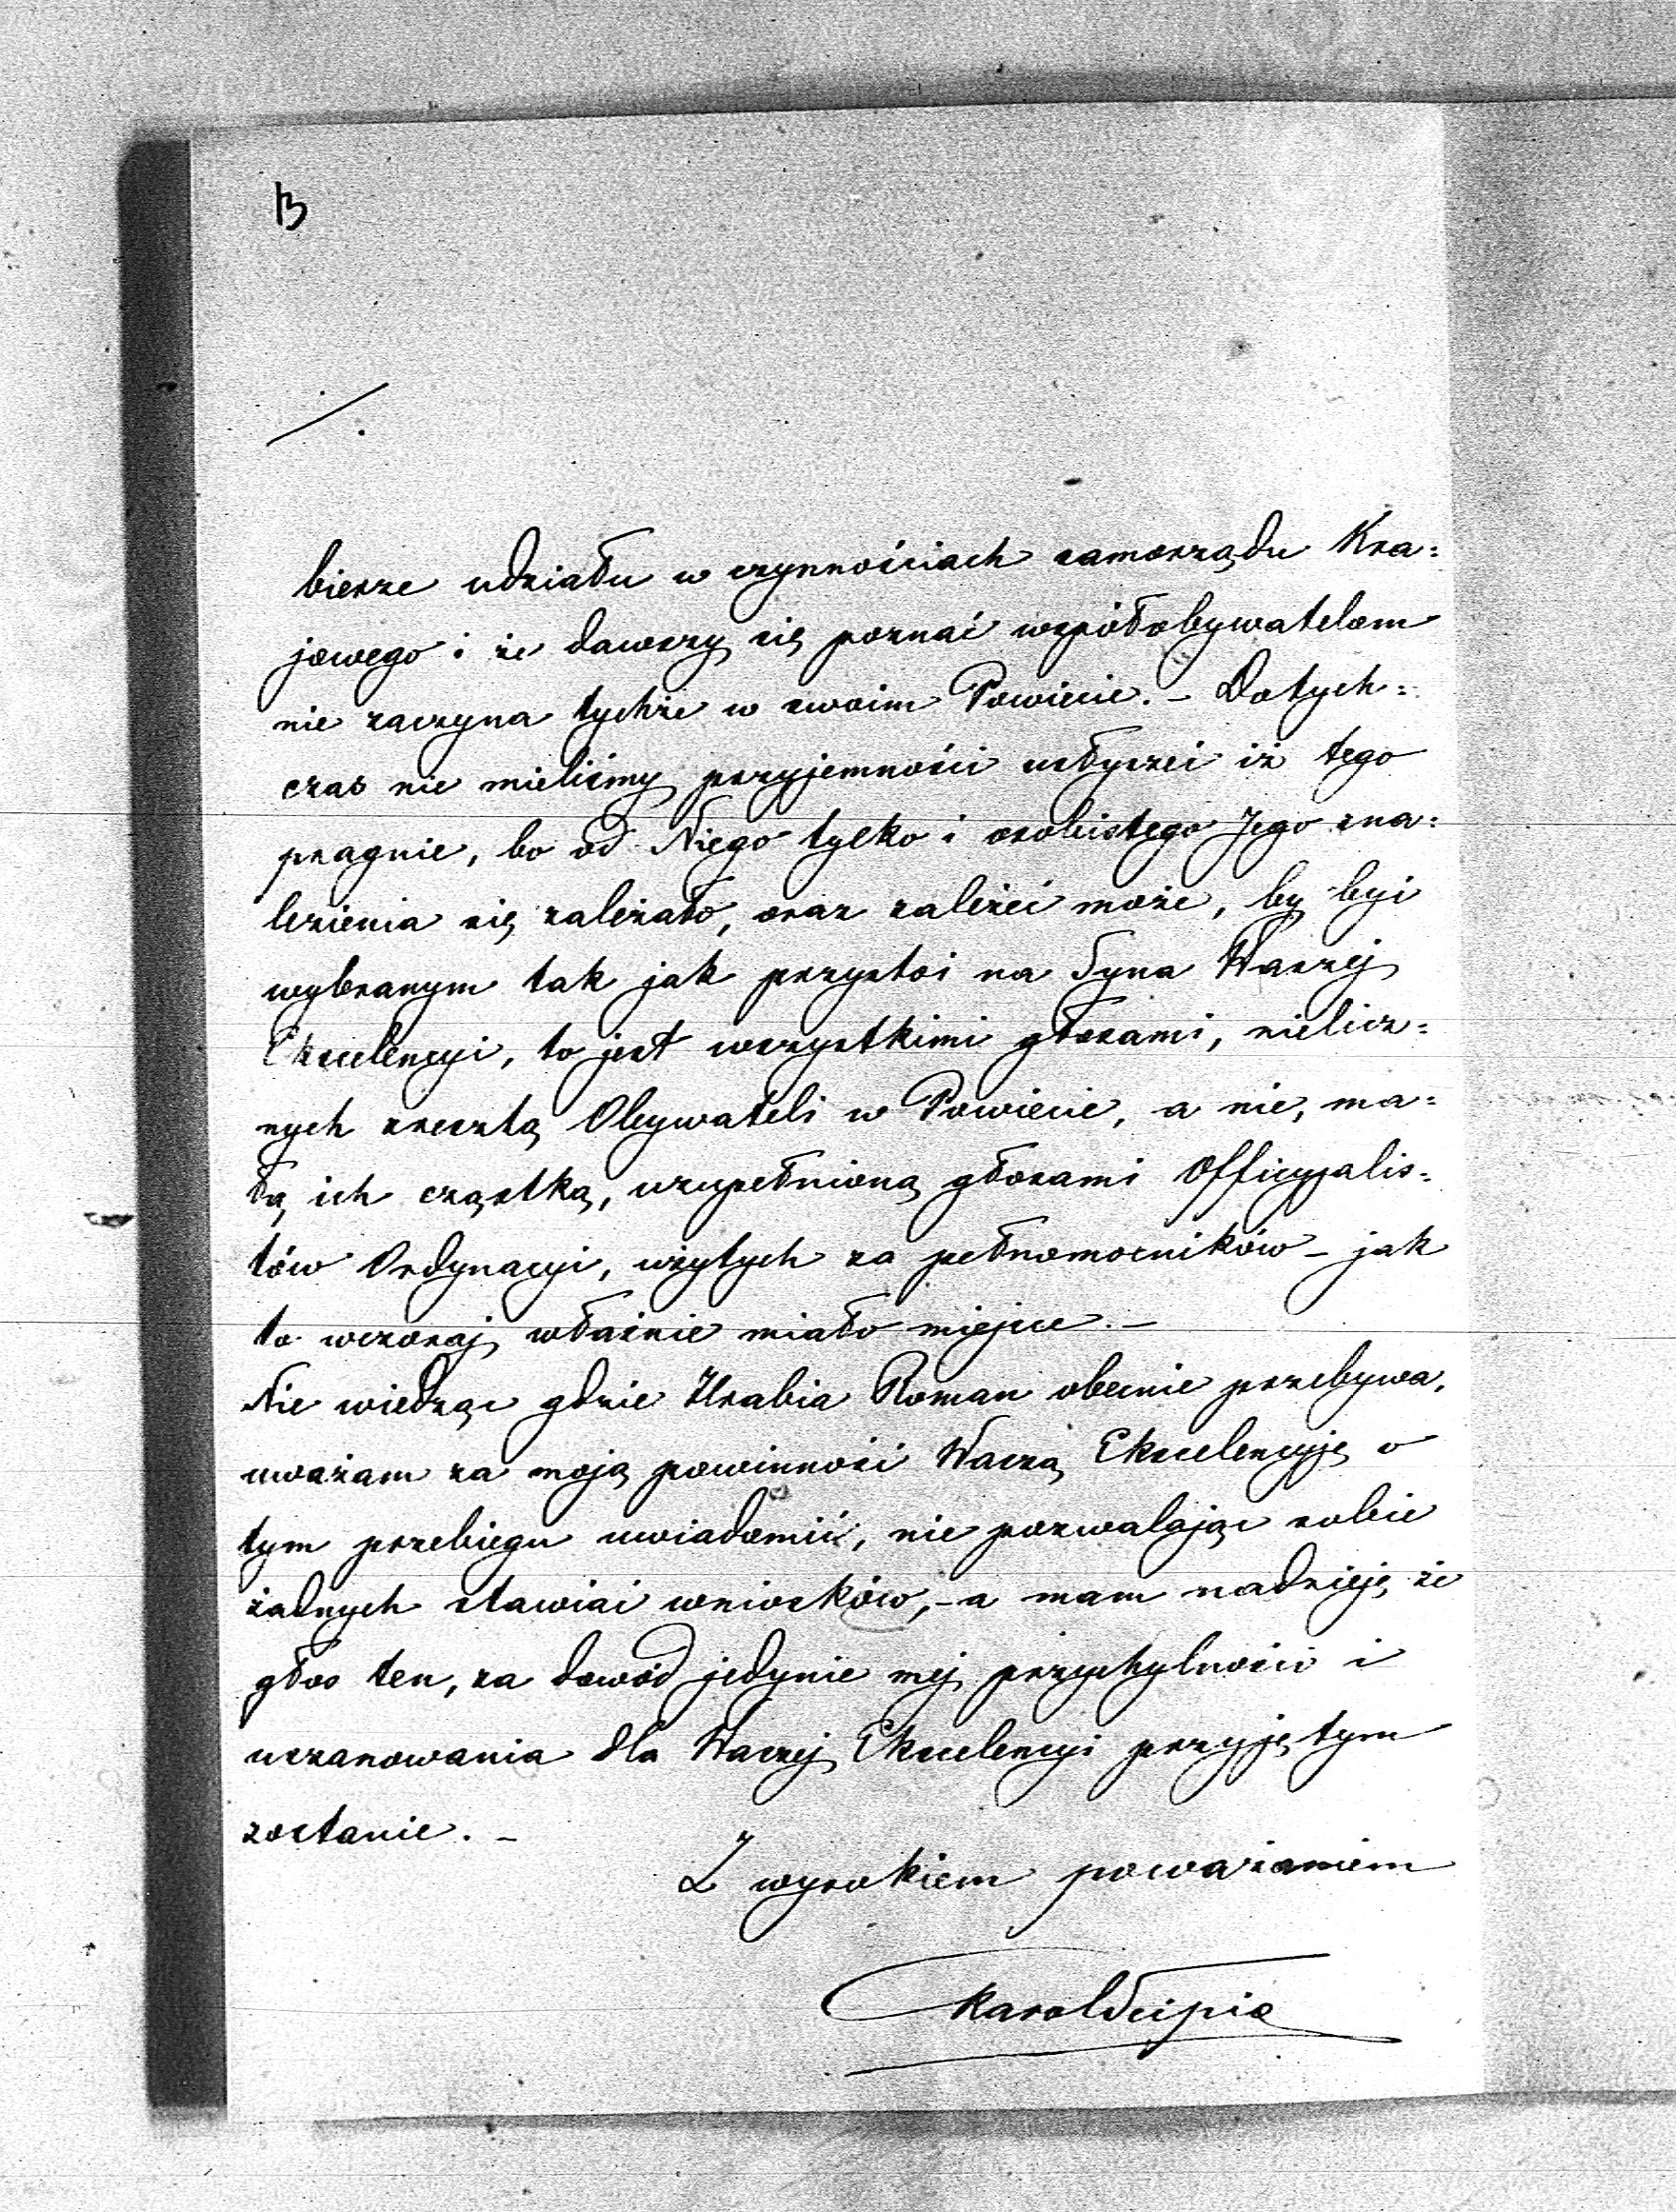 13
/.
bierze udziału w czynnościach samorządu Kra=
jowego i że dawszy się poznać współobywatelom
nie zaczyna tychże w swoim Powiecie. – Dotych=
czas nie mieliśmy przyjemności usłyszeć iż tego
pragnie, bo od Niego tylko i osobistego Jego zna=
lezienia się zależało, oraz zależeć może, by być
wybranym tak jak przystoi na Syna Waszej
Ekscelencyi, to jest wszystkimi głosami, nielicz=
nych zresztą Obywateli w Powiecie, a nie, ma=
łą ich cząstką, uzupełnioną głosami Officyalis=
tów Ordynacyi, użytych za pełnomocników – jak
to wczoraj właśnie miało miejsce. –
Nie wiedząc gdzie Hrabia Roman obecnie przebywa,
uważam za moją powinność Waszą Ekscelencyję o
tym przebiegu uwiadomić, nie pozwalając sobie
żadnych stawiać wniosków, – a mam nadzieję że
głos ten, za dowód jedynie mej przychylności i
uszanowania dla Waszej Ekscelencyi przyjętym
zostanie. –
Z wysokiem poważaniem
Karol Scipio